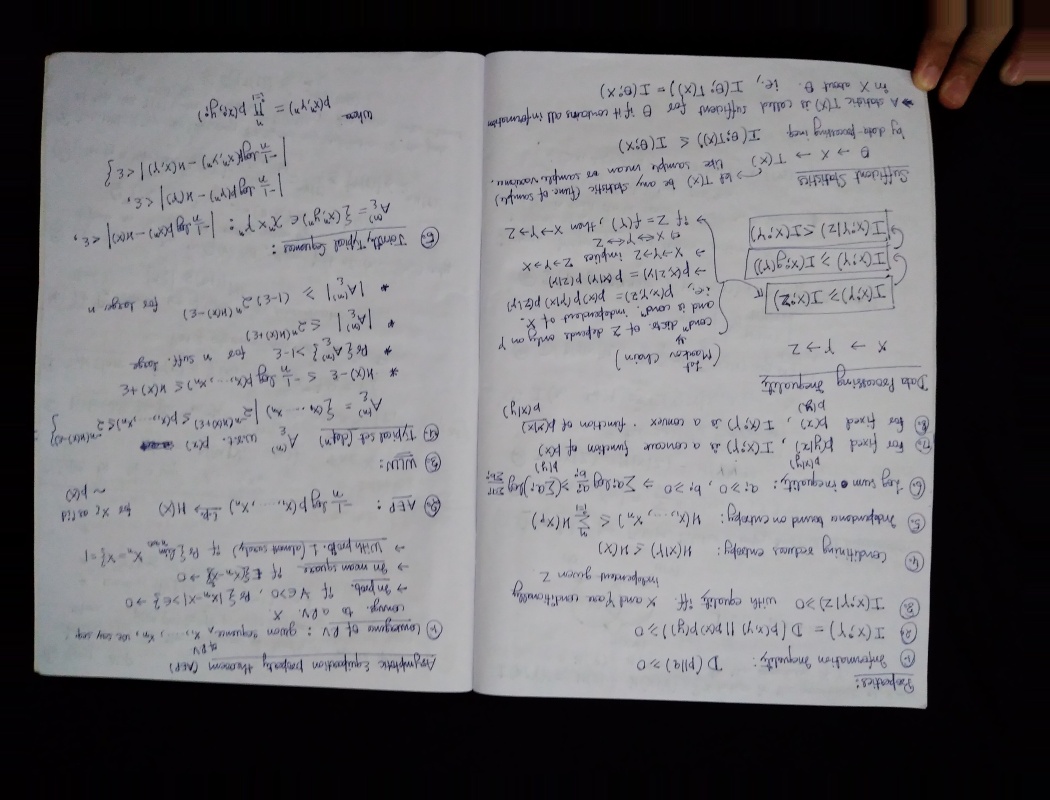 Properties:
1. Information Inequality: D(p||q) ≥ 0
2. I(X;Y) = D(p(x,y) || p(x) p(y)) ≥ 0
3. I(X;Y|Z) ≥ 0 with equality iff. X and Y are conditionally
independent given Z
4. Conditioning reduces entropy: H(X|Y) ≤ H(X)
5. Independence bound on entropy: H(X1, ..., Xn) ≤ Σ_{i=1}^{n} H(Xi)
6. Log sum inequality: ai ≥ 0, bi ≥ 0 ⇒ Σ ai log ai/bi ≥ (Σ ai) log Σai/Σbi
7. For fixed p(y|x), I(X;Y) is a concave function of p(x)
8. For fixed p(x), I(X;Y) is a convex function of p(y|x)
Data Processing Inequality
X → Y → Z (Markov Chain)
I(X;Y) ≥ I(X;Z)
I(X;Y) ≥ I(X;g(Y))
I(X;Y|Z) ≤ I(X;Y)
condn distr of Z depends only on Y
and is condn independent of X.
i.e., p(x,y,z) = p(x) p(y|x) p(z|y)
→ p(x,z|y) = p(x|y) p(z|y)
→ X→Y→Z implies Z→Y→X
⇒ X↔Y↔Z
→ if Z = f(Y), then X→Y→Z
Sufficient Statistics
→ let T(X) be any statistic (func of sample)
θ → X → T(X) like sample mean or sample variance.
by data-processing ineq. I(θ;T(X)) ≤ I(θ;X)
* A statistic T(X) is called sufficient for θ if it contains all information
in X about θ. i.e., I(θ;T(X)) = I(θ;X)
Asymptotic Equipartition property theorem (AEP)
1. Convergence of RV: given sequence of RV X1, ..., Xn, we say seq
convg. to a RV X
→ In prob. if ∀ ε>0, Pr{|Xn-X|>ε} → 0
→ In mean square if E(Xn-X)² → 0
→ With prob. 1 (almost surely) if Pr{lim n→∞ Xn = X} = 1
2. AEP: -1/n log p(X1, ..., Xn) → H(X) for Xi as iid
~ p(x)
3. WLLN:
4. Typical set (defn) Aε^(n) w.r.t. p(x)
Aε^(n) = {(x1, ... xn) | 2^{-n(H(X)+ε)} ≤ p(x1, ..., xn) ≤ 2^{-n(H(X)-ε)}}
* H(X)-ε ≤ -1/n log p(x1, ..., xn) ≤ H(X)+ε
* Pr{Aε^(n)} > 1-ε for n suff. large
* |Aε^(n)| ≤ 2^{n(H(X)+ε)}
* |Aε^(n)| ≥ (1-ε) 2^{n(H(X)-ε)} for large n
5. Jointly Typical Sequences:
Aε^(n) = {(x^n,y^n) ∈ X^n × Y^n : |-1/n log p(x^n) - H(X)| < ε,
|-1/n log p(y^n) - H(Y)| < ε,
|-1/n log p(x^n,y^n) - H(X,Y)| < ε}
where
p(x^n,y^n) = Π_{i=1}^{n} p(xi,yi)